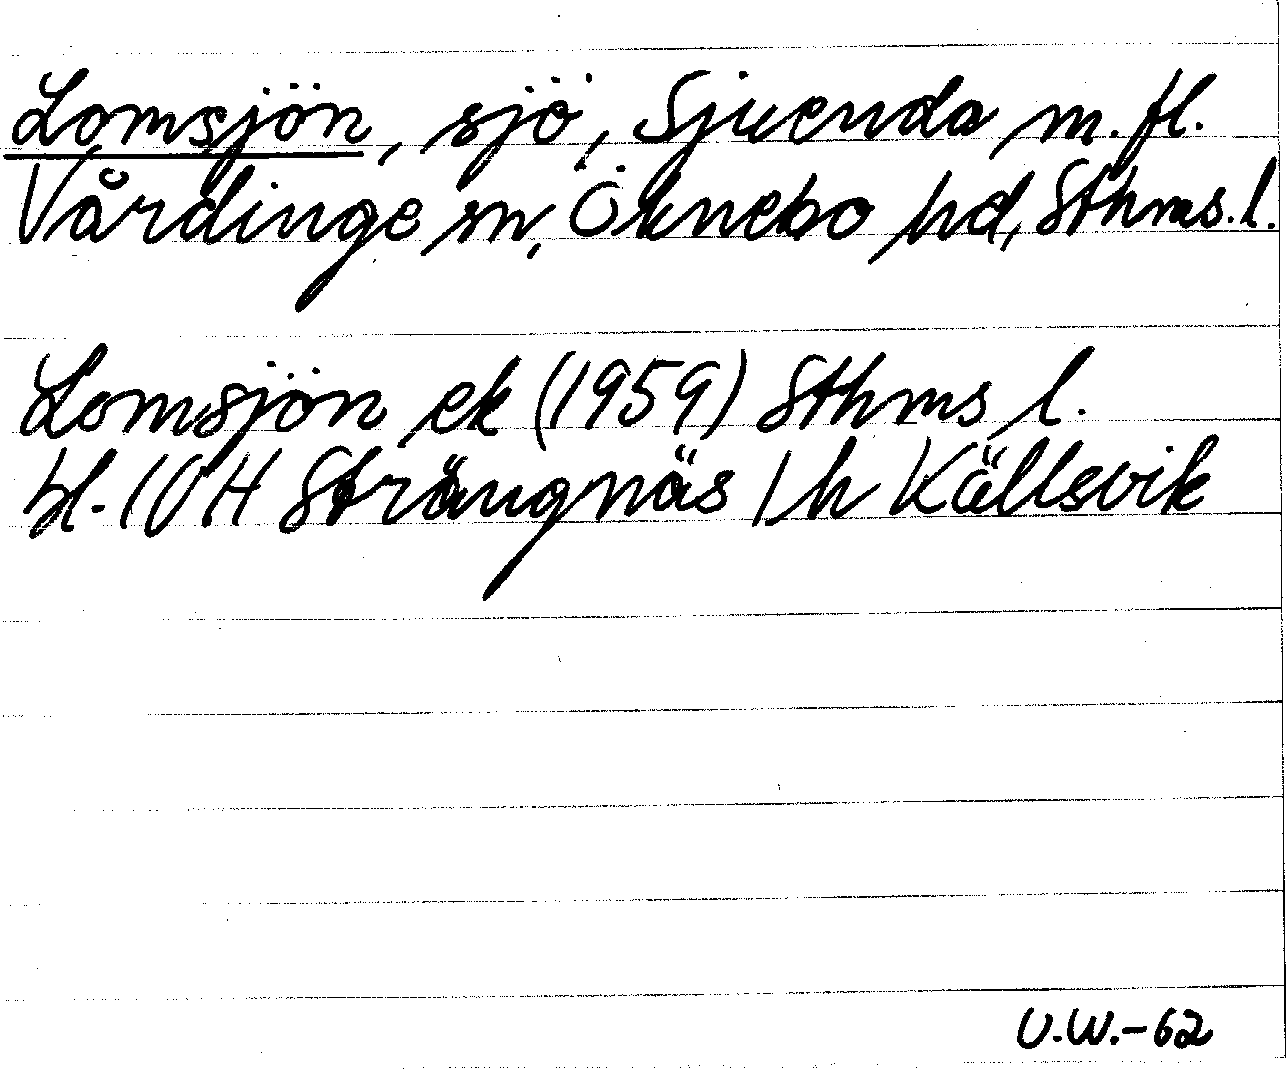 Lomsjön, sjö, Sjuenda m.fl.
Vårdinge sn, Öknebo hd, Sthms.l.
Lomsjön ek (1959) Sthms l.
bl. 10 H Strängnäs 1 h Källsvik
U.W.-62